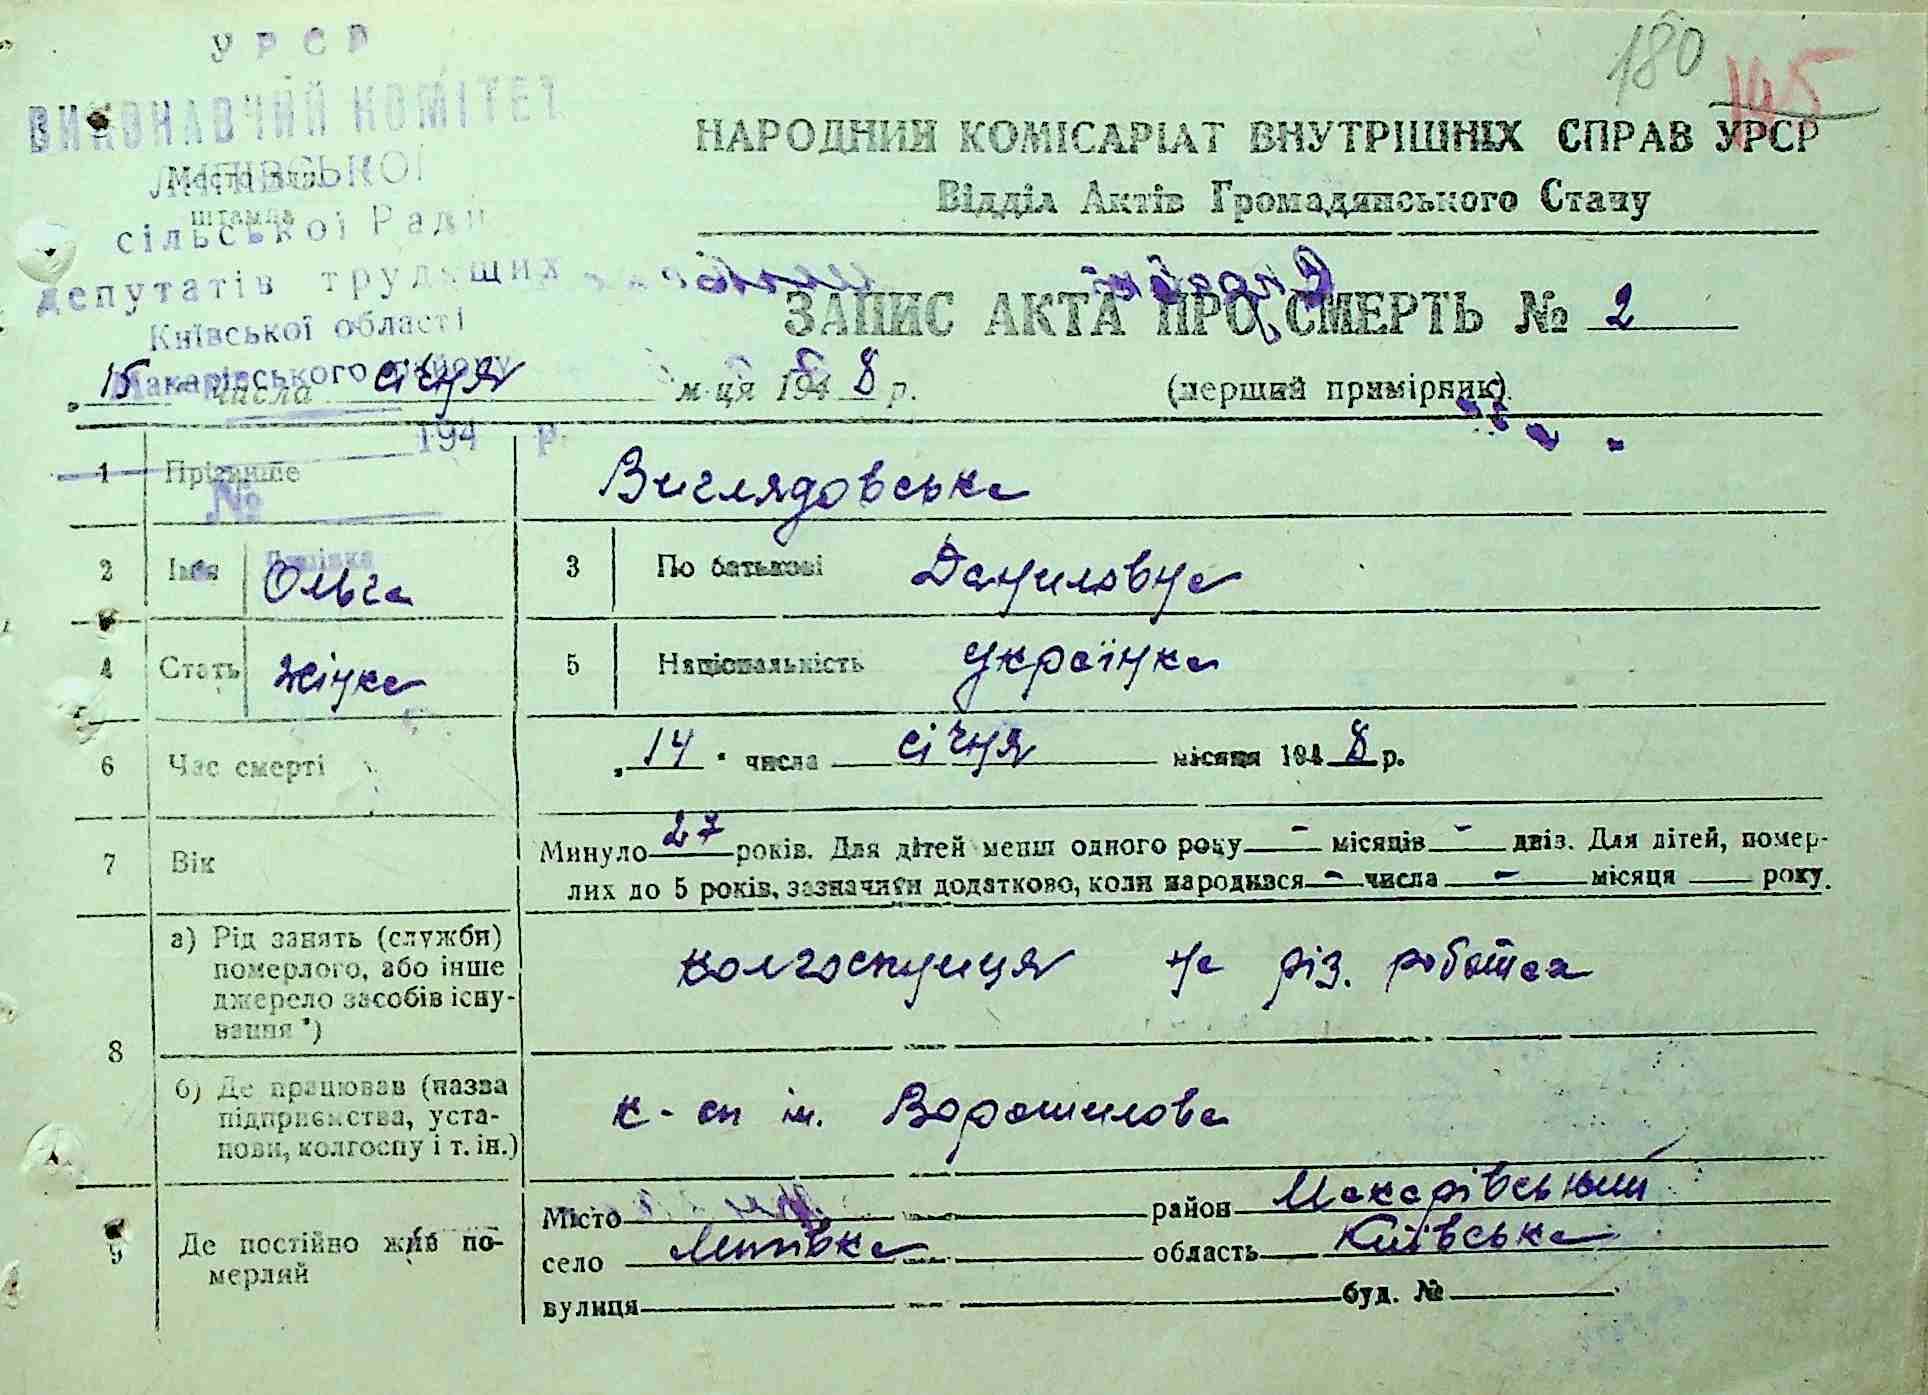 180 145
УРСР
ВИКОНАВЧИЙ КОМІТЕТ
ЛИПІВСЬКОЇ
Місто для
штампа
сільської Ради
депутатів трудящих
Київської області
Макарівського району
194 р.
№
Липівка
НАРОДНИЙ КОМІСАРІАТ ВНУТРІШНІХ СПРАВ УРСР
Відділ Актів Громадянського Стану
ЗАПИС АКТА ПРО СМЕРТЬ № 2
„15 числа січня м-ця 1948 р. (перший примірник)
1 Прізвище Виглядовська
2 Імя Ольга 3 По батькові Даниловна
4 Стать жінка 5 Національність українка
6 Час смерті „14" числа січня місяця 1948 р.
7 Вік Минуло 27 років. Для дітей менш одного року - місяців - днів. Для дітей, помер-
лих до 5 років, зазначити додатково, коли народився - числа - місяця року.
8 а) Рід занять (служби)
померлого, або інше
джерело засобів існу-
вання *)
колгоспниця на різ. роботах
б) Де працював (назва
підприємства, уста-
нови, колгоспу і т. ін.)
к-сп ім. Ворошилова
9 Де постійно жив по-
мерлий
Місто район Макарівський
село Липівка область Київська
вулиця буд. №